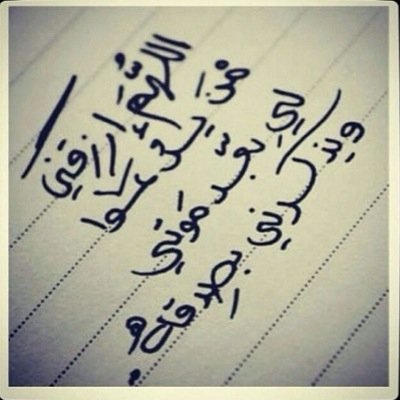 اللهُمَّ ارزقني
مَن يدعوا
لِي بعد مَوتِي
ويذكرني بصدقة